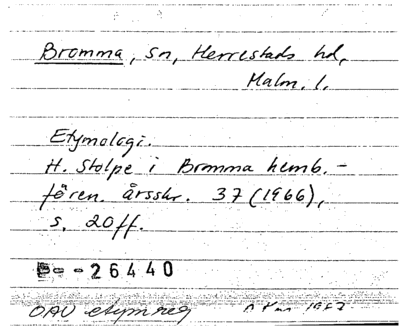 Bromma, sn, Herrestads hd,
Malm. l.
Etymologi.
H. Stolpe i Bromma hemb.-
fören. årsskr. 37 (1966),
s. 20ff.
26440
OAU etymreg